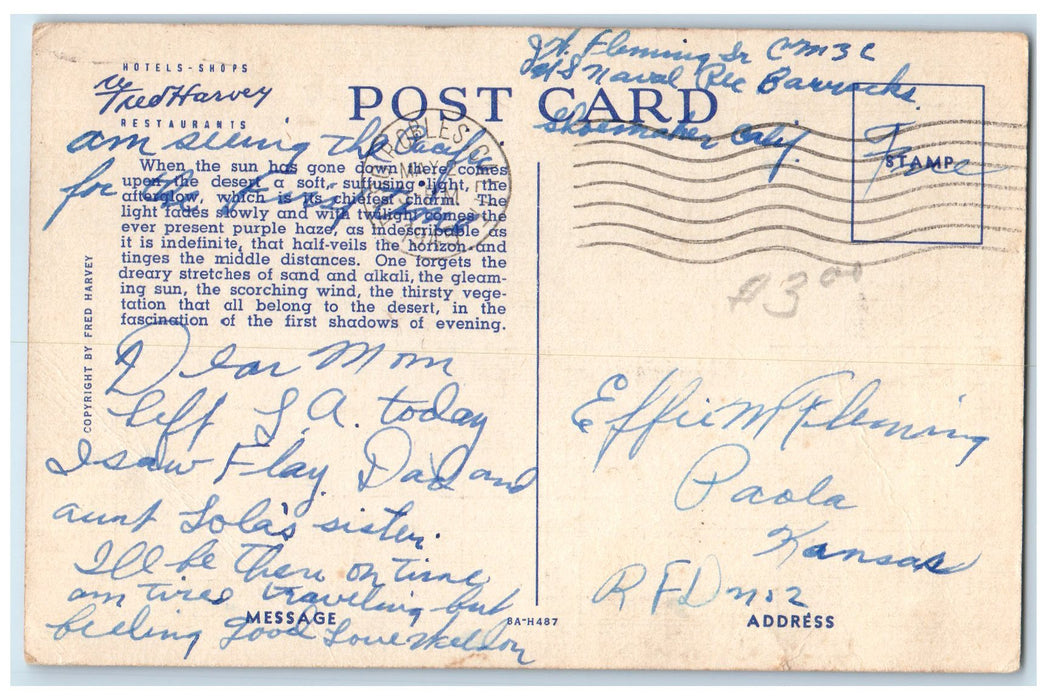 HOTELS-SHOPS
Fred Harvey
RESTAURANTS
POST CARD
J. W. Fleming Sr CM3C
US Naval Rec Barracks
Shoemaker Calif.
STAMP
Free
ROBLES
MAY
am seeing the Pacific
for the first time
When the sun has gone down there comes
upon the desert a soft, suffusing light, the
afterglow, which is its chiefest charm. The
light fades slowly and with twilight comes the
ever present purple haze, as indescribable as
it is indefinite, that half-veils the horizon and
tinges the middle distances. One forgets the
dreary stretches of sand and alkali, the gleam-
ing sun, the scorching wind, the thirsty vege-
tation that all belong to the desert, in the
fascination of the first shadows of evening.
COPYRIGHT BY FRED HARVEY
$3.00
Dear Mom
Left L.A. today
I saw Flay. Dad and
aunt Lola's sister.
I'll be there on time
am tired traveling but
feeling good Love Weldon
MESSAGE
8A-H487
Effie M Fleming
Paola
Kansas
RFD no 2
ADDRESS